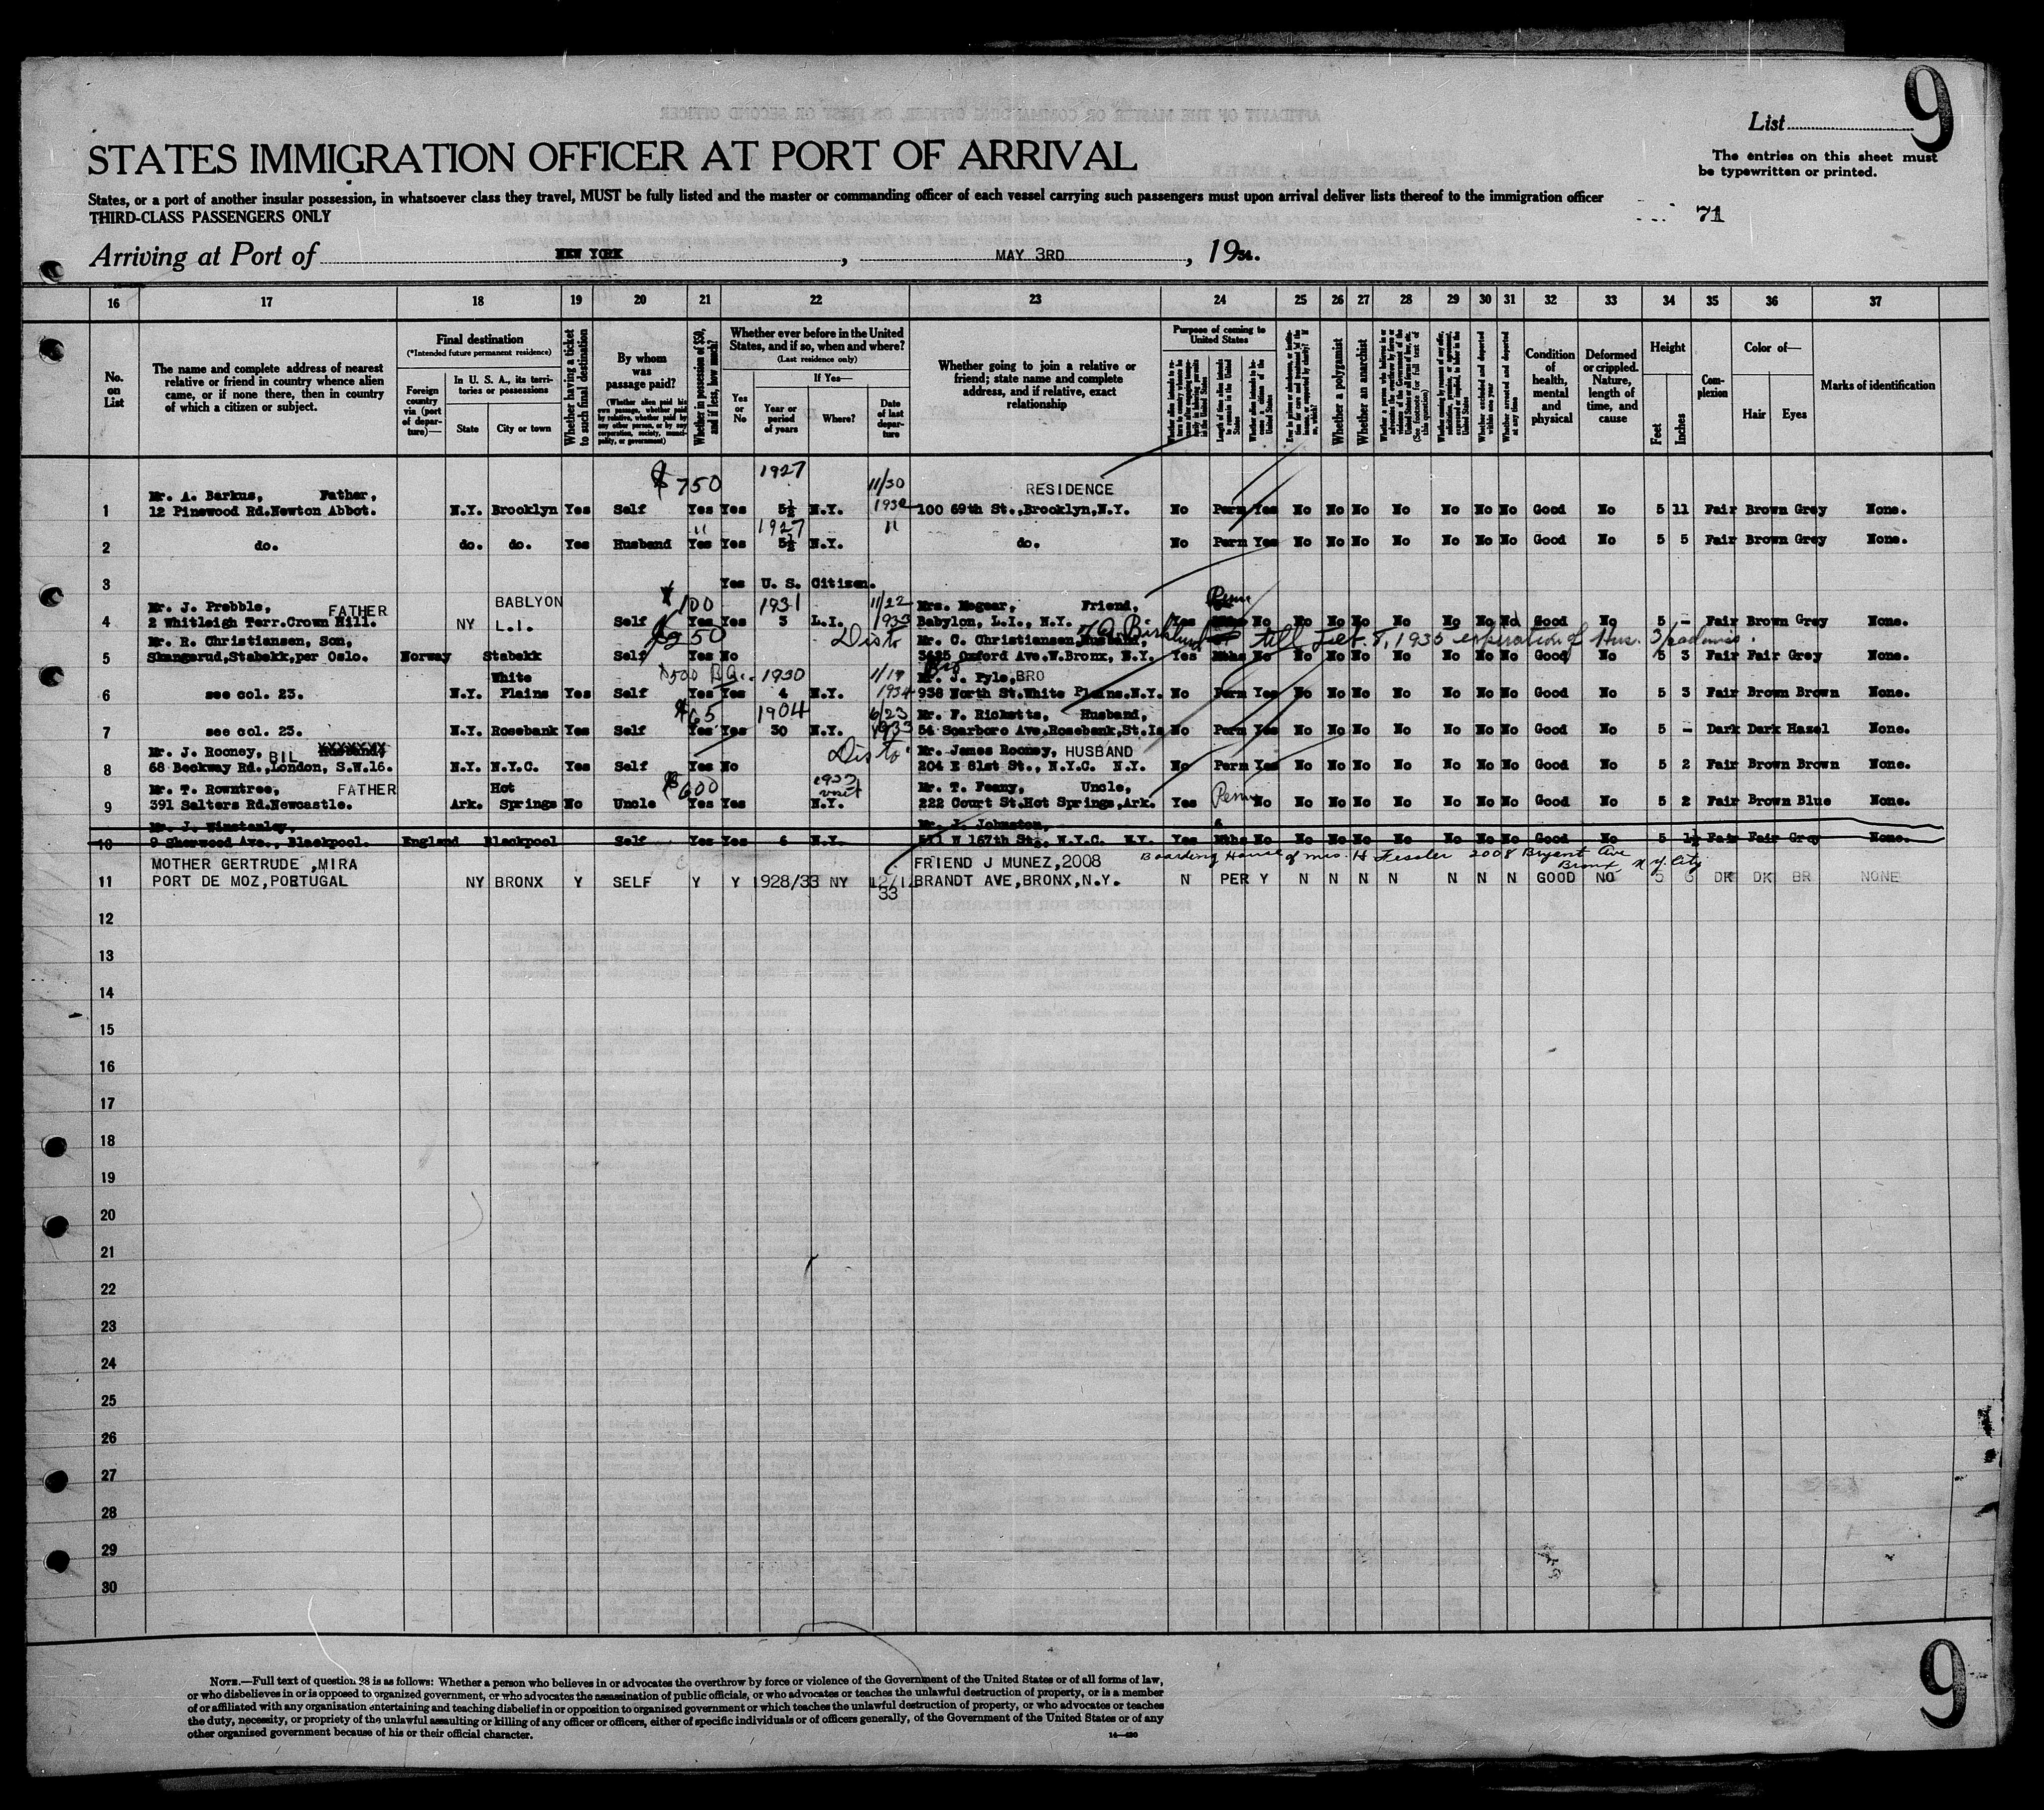 9
List
The entries on this sheet must
be typewritten or printed.
STATES IMMIGRATION OFFICER AT PORT OF ARRIVAL
States, or a port of another insular possession, in whatsoever class they travel, MUST be fully listed and the master or commanding officer of each vessel carrying such passengers must upon arrival deliver lists thereof to the immigration officer
THIRD-CLASS PASSENGERS ONLY
71
Arriving at Port of NEW YORK, MAY 3RD, 1934.
16 17 18 19 20 21 22 23 24 25 26 27 28 29 30 31 32 33 34 35 36 37
No. on List
The name and complete address of nearest
relative or friend in country whence alien
came, or if none there, then in country
of which a citizen or subject.
Final destination
(*Intended future permanent residence)
Foreign country via (port of departure)—
In U. S. A., its territories or possessions
State
City or town
Whether having a ticket to such final destination
By whom was passage paid?
(Whether alien paid his own passage, whether paid by relative, whether paid by any other person, or by any corporation, society, municipality, or government)
Whether in possession of $50, and if less, how much?
Whether ever before in the United
States, and if so, when and where?
(Last residence only)
Yes or No
If Yes—
Year or period of years
Where?
Date of last departure
Whether going to join a relative or
friend; state name and complete
address, and if relative, exact
relationship
Purpose of coming to United States
Whether a polygamist
Whether an anarchist
Condition of health, mental and physical
Deformed or crippled. Nature, length of time, and cause
Height
Feet
Inches
Complexion
Color of—
Hair
Eyes
Marks of identification
$750 1927 11/30
Mr. A. Barkus, Father, RESIDENCE
1 12 Pinewood Rd.Newton Abbot. N.Y. Brooklyn Yes Self Yes Yes 5½ N.Y. 100 69th St.,Brooklyn,N.Y. No Perm Yes No No No No No No No Good No 5 11 Fair Brown Grey None.
" 1927 "
2 do. do. do. Yes Husband Yes Yes 5½ N.Y. do. No Perm Yes No No No No No No No Good No 5 5 Fair Brown Grey None.
3 Yes U. S. Citizen.
Mr. J. Prebble, FATHER BABLYON $100 1931 11/22 Mrs. Megear, Friend, Perm
4 2 Whitleigh Terr.Crown Hill. NY L.I. Self Yes Yes 3 L.I. 1933 Babylon, L.I., N.Y. Yes No No No No No No No No Good No 5 - Fair Brown Grey None.
Mr. R. Christiansen, Son, $250 Mr. C. Christiansen, Husband, till
5 Skangerud,Stabekk,per Oslo. Norway Stabekk Self Yes No 3425 Oxford Ave.W.Bronx, N.Y. Yes Mths No No No No No No No No Good No 5 3 Fair Fair Grey None.
White $500 1930 1/19 Mr. J. Pyle, BRO
6 see col. 23. N.Y. Plains Yes Self Yes Yes 4 N.Y. 1934 938 North St.White Plains.N.Y. No Perm Yes No No No No No No No Good No 5 3 Fair Brown Brown None.
$65 1904 6/23 Mr. F. Ricketts, Husband,
7 see col. 23. N.Y. Rosebank Yes Self Yes Yes 30 N.Y. 1933 54 Scarboro Ave.Rosebank,St.Is No Perm Yes No No No No No No No Good No 5 - Dark Dark Hazel None.
Mr. J. Rooney, BIL Mr. James Rooney, HUSBAND
8 68 Beckway Rd.,London, S.W.16. N.Y. N.Y.C. Yes Self Yes No 204 E 81st St., N.Y.C. N.Y. No Perm Yes No No No No No No No Good No 5 2 Fair Brown Brown None.
Mr. T. Rowntree, FATHER Hot $600 1933 visit Mr. T. Feany, Uncle,
9 391 Salters Rd.Newcastle. Ark. Springs No Uncle Yes Yes N.Y. 222 Court St.Hot Springs,Ark. Yes Perm No No No No No No No No Good No 5 2 Fair Brown Blue None.
Mr. J. Winstanley, Mr. J. Johnston, 6
10 9 Sherwood Ave., Blackpool. England Blackpool Self Yes Yes 6 N.Y. 511 W 167th St., N.Y.C. N.Y. Yes Mths No No No No No No No No Good No 5 1½ Fair Fair Grey None.
MOTHER GERTRUDE ,MIRA FRIEND J MUNEZ,2008 Boarding House of Mrs. H Fessler 2008 Bryant Ave Bronx N Y City
11 PORT DE MOZ,PORTUGAL NY BRONX Y SELF Y Y 1928/33 NY 33 BRANDT AVE,BRONX,N.Y. N PER Y N N N N N N N GOOD NO 5 6 DK DK BR NONE
12
13
14
15
16
17
18
19
20
21
22
23
24
25
26
27
28
29
30
NOTE.—Full text of question 28 is as follows: Whether a person who believes in or advocates the overthrow by force or violence of the Government of the United States or of all forms of law,
or who disbelieves in or is opposed to organized government, or who advocates the assassination of public officials, or who advocates or teaches the unlawful destruction of property, or is a member
of or affiliated with any organization entertaining and teaching disbelief in or opposition to organized government or which teaches the unlawful destruction of property, or who advocates or teaches
the duty, necessity, or propriety of the unlawful assaulting or killing of any officer or officers, either of specific individuals or of officers generally, of the Government of the United States or of any
other organized government because of his or their official character.
9